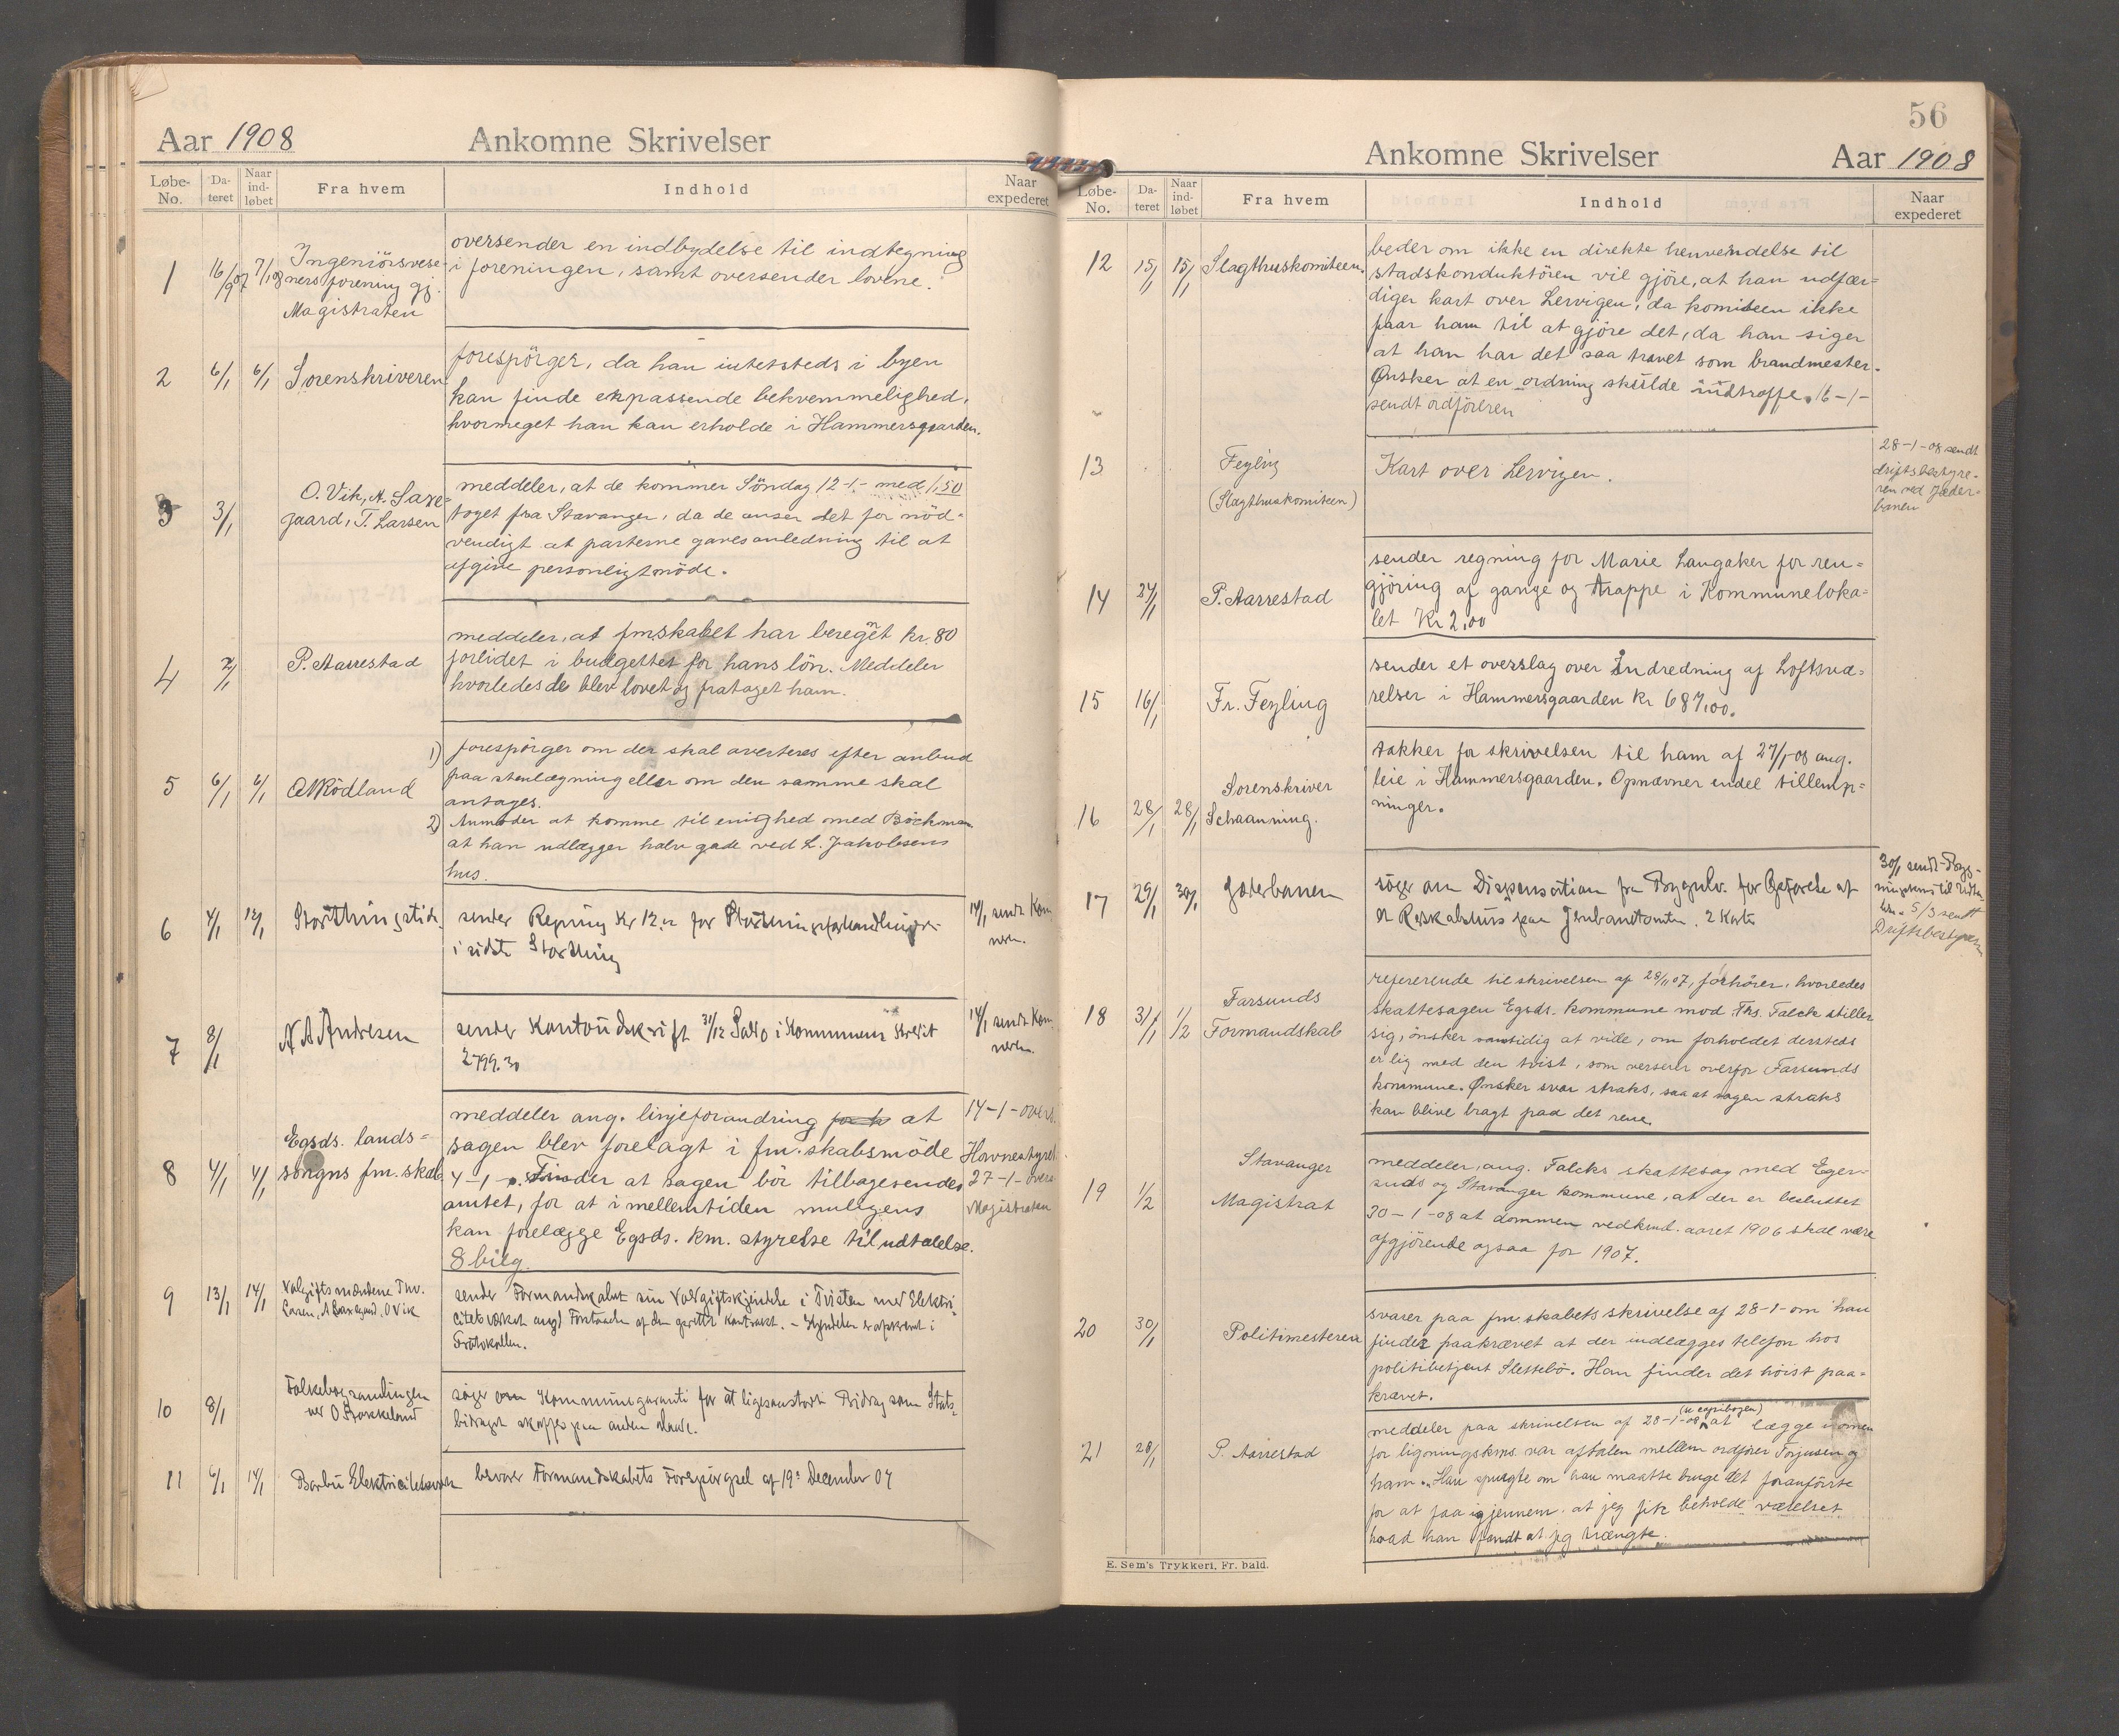 Aar 1908
Ankomne Skrivelser
Løbe-No.
Da-teret
Naar ind-løbet
Fra hvem
Indhold
Naar expederet
1 16/9 07 7/1 08
Ingeniörsvese-
ners forening gj.
Magistraten
oversender en indbydelse til indtegning
i foreningen, samt oversender lovene.
2 6/1 6/1 Sorenskriveren
forespörger, da han intetsteds i byen
kan finde en passende bekvemmelighed,
hvormeget han kan erholde i Hammersgaarden.
3 3/1
O. Vik, A. Saxe-
gaard, T. Larsen
meddeler, at de kommer Söndag 12-1- med 1,50
toget fra Stavanger, da de anser det for nöd-
vendigt at parterne gaves anledning til at
afgive personligt möde.
4 2/1 P. Aarrestad
meddeler, at fmskabet har beregnet kr. 80
forlidet i budgettet for hans lön. Meddeler
hvorledes de blev lovet og frataget ham.
5 6/1 6/1 A Rödland
1) forespörger om der skal averteres efter anbud
paa stenlægning eller om den samme skal
antages.
2) Anmoder at komme til enighed med Böckman
at han udlægger halv gade ved L. Jakobsens
hus.
6 4/1 12/1 Storthingstid.
sender Regning Kr 12.
for Storthingsforhandlinger
i sidste Storthing
14/1 sendt Kem
neren.
7 8/1 N A Andresen
sender Kontoudskrift 31/12 Saldo i Kommunens Kredit
2799.30
14/1 sendt Kem
neren.
8 4/1 4/1
Egsds. lands-
sogns fm. skab.
meddeler ang. linjeforandring at
sagen blev forelagt i fm. skabsmöde
4-1-. Finder at sagen bör tilbagesendes
amtet, for at i mellemtiden muligens
kan forelægge Egsds. km. styrelse til udtalelse.
8 bilg.
14-1- overs.
Havnestyret
27-1- overs
Magistraten
9 13/1 14/1
Valgiftsmændene Thv.
Larsen, A Saxegaard, O Vik
sender Formandskabet sin Voldgiftskjendelse i Tvisten med Elektri-
citetsværket angd Forstaaelse af den oprettede Kontrakt. - Kjendelsen er afskrevet i
Protokollen.
10 8/1
Folkebogsamlingen
ved O Stokkeland
söger om Kommunegaranti for et ligesaastort Bidrag som Stats-
bidraget skaffes paa anden Maade.
11 6/1 14/1 Barbu Elektricitetsverk
besvarer Formandskabets Forespörgsel af 19de December 07
56
Ankomne Skrivelser
Aar 1908
Løbe-No.
Da-teret
Naar ind-løbet
Fra hvem
Indhold
Naar expederet
12 15/1 15/1 Slagthuskomiteen.
beder om ikke en direkte henvendelse til
stadskonduktören vil gjöre, at han udfær-
diger kart over Lervigen, da komiteen ikke
faar ham til at gjöre det, da han siger
at han har det saa travet som brandmester.
Ønsker at en ordning skulde indtræffe. 16-1-
sendt ordföreren
13
Feyling
(Slagthuskomiteen)
Kart over Lervigen.
28-1-08 sendt
driftsbestyre-
ren ved Jæder-
banen
14 24/1 P. Aarrestad
sender regning for Marie Langaker for ren-
gjöring af gange og trappe i Kommuneloka-
let Kr 2,00
15 16/1 Fr. Feyling
sender et overslag over Indredning af Loftsvæ-
relser i Hammersgaarden Kr 687,00.
16 28/1 28/1
Sorenskriver
Schaanning.
takker for skrivelsen til ham af 27/1-08 ang.
leie i Hammersgaarden. Opnævner endel tillemp-
ninger.
17 29/1 30/1 Jæderbanen
söger om Dispensation fra Bygnlv. for Opförelse af
et Redskabshus paa Jernbanetomten. 2 Karter
30/1 sendt Byg-
5/3 sendt
Driftsbestyreren
18 31/1 1/2
Farsunds
Formandskab
refererende til skrivelsen af 28/11 07, forhörer, hvorledes
skattesagen Egsds. kommune mod Ths. Falck stiller
sig, önsker samtidig at vide, om forholdet dersteds
er lig med den tvist, som verserer overfor Farsunds
kommune. Ønsker svar straks, saa at sagen straks
kan blive bragt paa det rene.
19 1/2
Stavanger
Magistrat
meddeler, ang. Falcks skattesag med Eger-
sunds og Stavanger kommune, at der er besluttet
30-1-08 at dommen vedkmd. aaret 1906 skal være
afgjörende ogsaa for 1907.
20 30/1 Politimesteren
svarer paa fm. skabets skrivelse af 28-1- om han
finder paakrævet at der indlægges telefon hos
politibetjent Slettebö. Han finder det höist paa-
krævet.
21 28/1 P. Aarrestad
meddeler paa skrivelsen af 28-1-08 (se copibogen) at lægge
for ligningskms. var aftalen mellem ordförer Torjusen og
ham. Han spurgte om han maatte bruge det foranförte
for at faa igjennem at jeg fik beholde værelset
hvad han fandt at jeg trængte.
E. Sem's Trykkeri, Fr. hald.